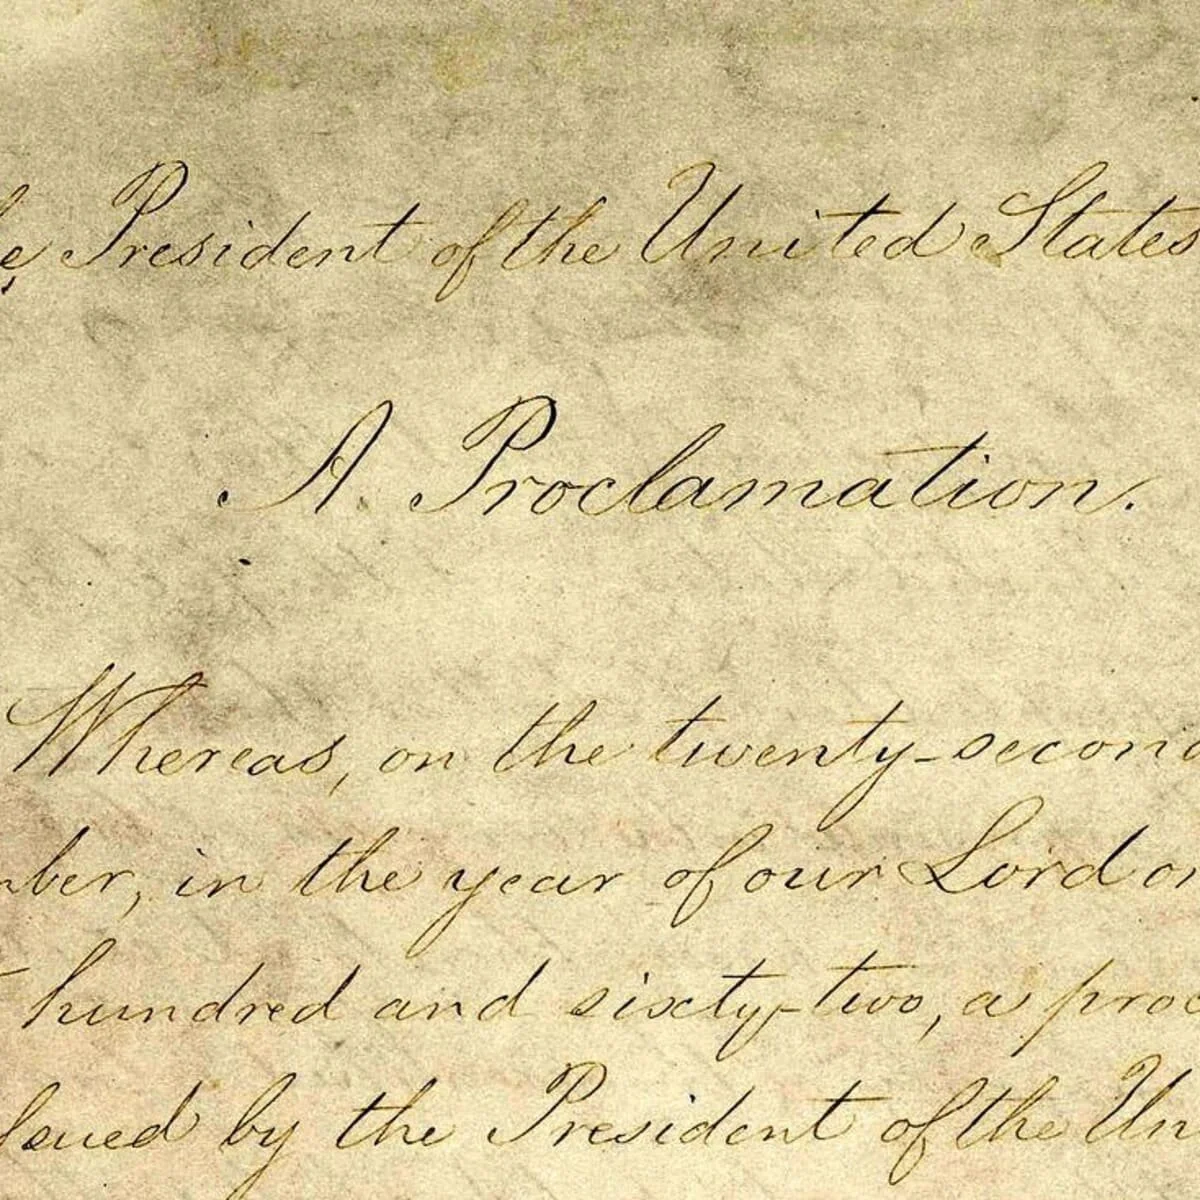 e President of the United States
A Proclamation.
Whereas, on the twenty-second
ber, in the year of our Lord on
hundred and sixty-two, a proc
ssued by the President of the Un